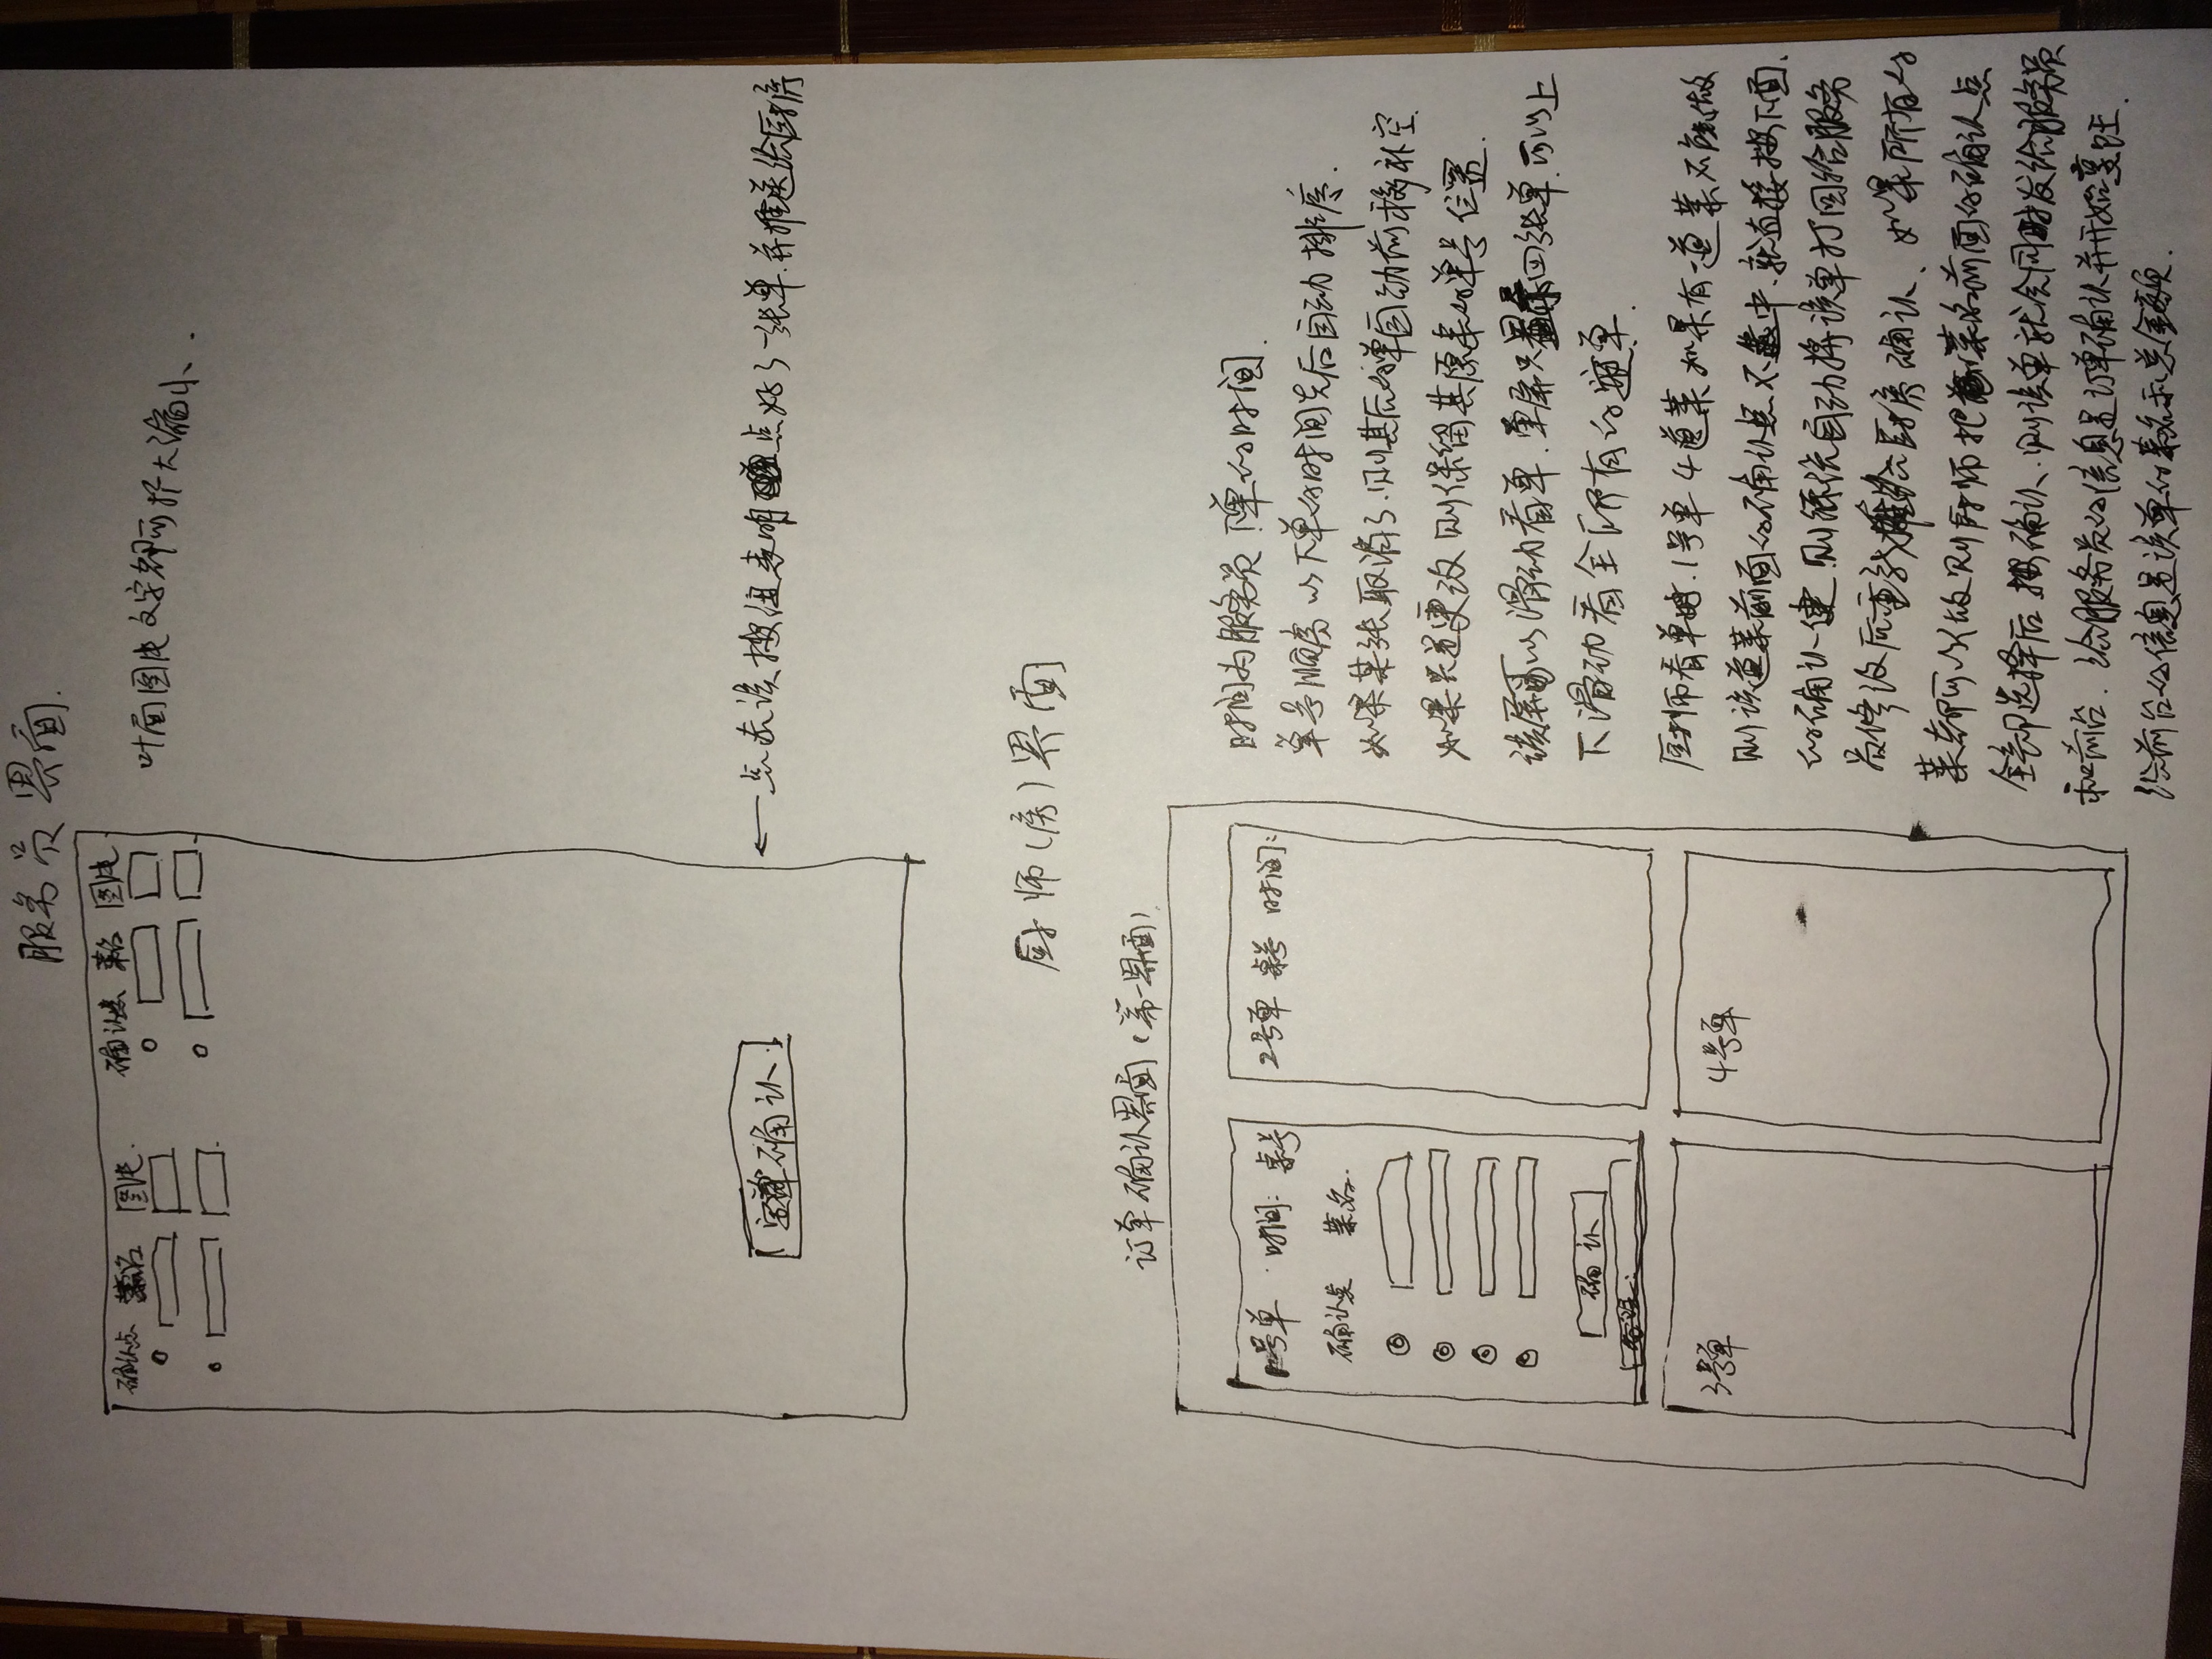 服务员界面.
确认点 菜名 图片. 确认点 菜名 图片
叶面图片文字都可扩大缩小.
确认
点击该按纽表明点好了一张单.并推送给厨房
厨师(房)界面
订单确认界面(第一界面)
1号单 时间: 桌号 2号单 桌号 时间:
确认点 菜名.
确认
备注:
3号单 4号单
时间为服务员下单的时间.
单号顺序以下单的时间先后自动排序.
如果某张取消了.则其后的单自动前移补空.
如果只是更改则保留其原来的单号位置.
该屏可以滑动看单.单屏只显示四张单.可以上
下滑动看全所有的单.
厨师看单时.1号单4道菜如果有一道菜不能做
则该道菜前面的确认点不选中.就直接按下面.
的确认健.则系统自动将该单打回给服务
员修改后重新推给厨房确认.如果所有的
菜都可以做则厨师把菜名前面的确认点
全部选择后按确认.则该单就会同时发给服务员
和前台.给服务员的信息是订单确认并开始烹饪.
给前台的信息是该单的菜名和总金额.